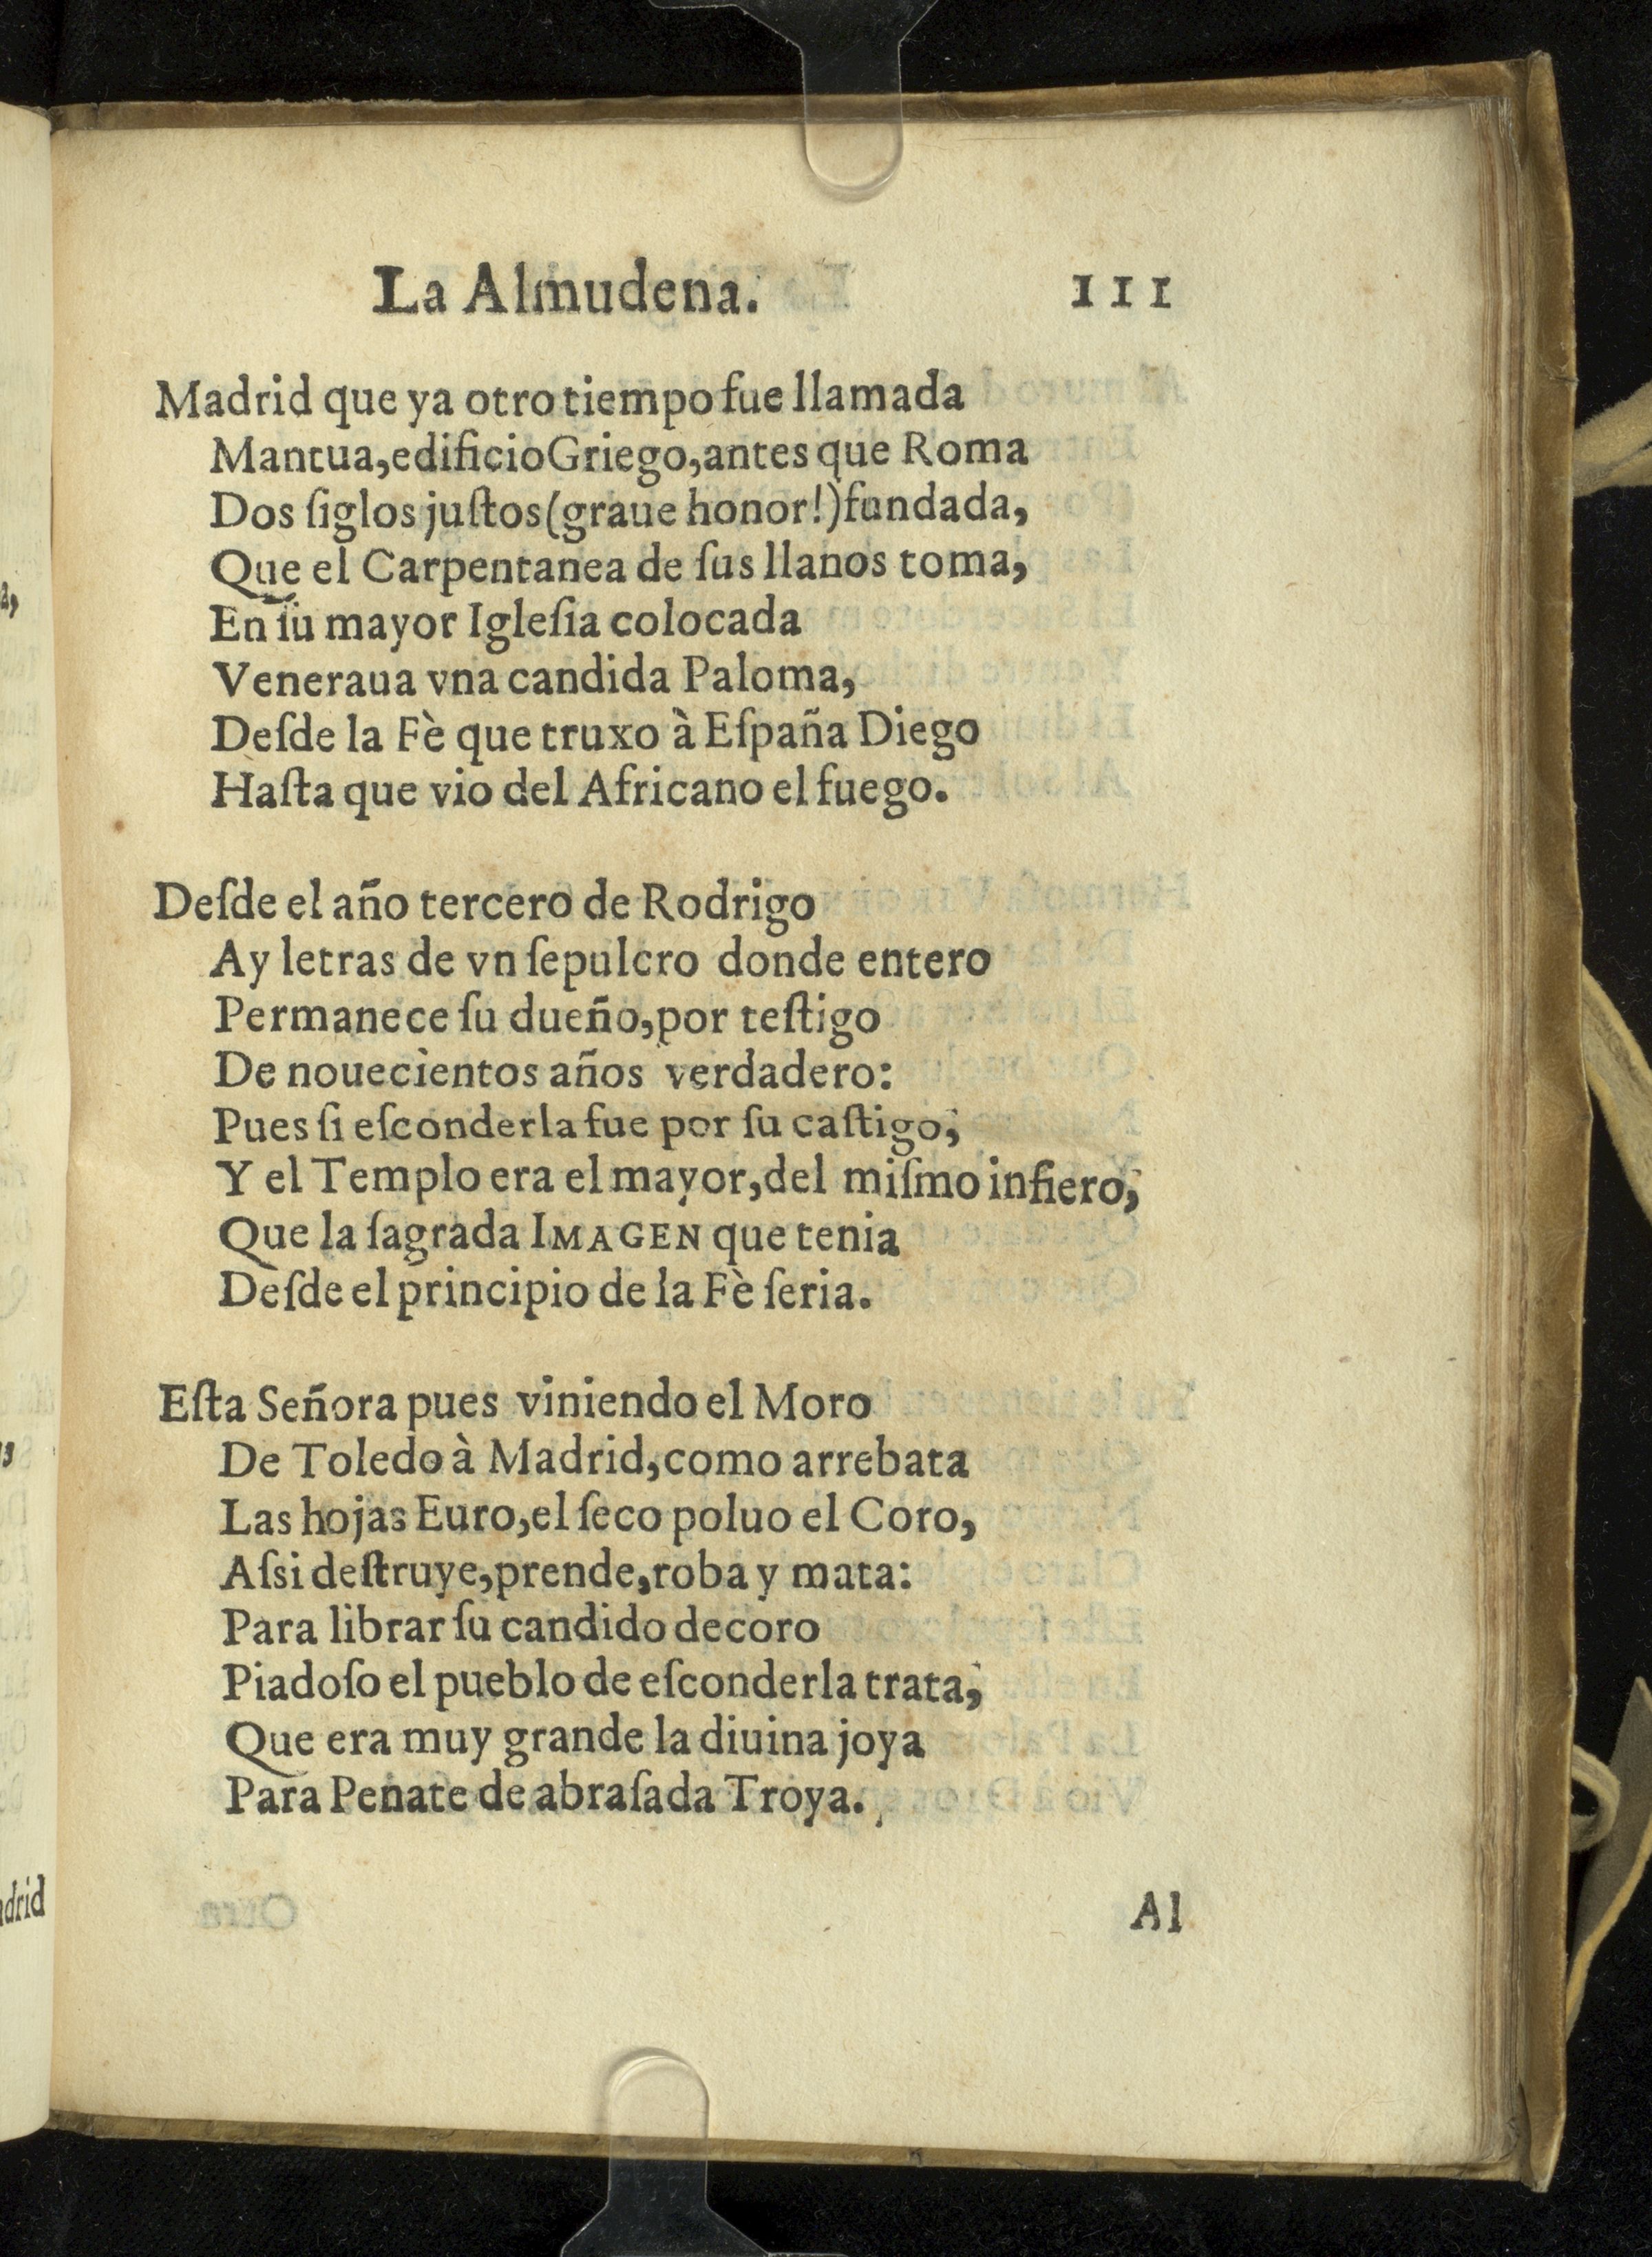 La Almudena. 111
Madrid que ya otro tiempo fue llamada
Mantua, edificio Griego, antes que Roma
Dos ſiglos juſtos (graue honor!) fundada,
Que el Carpentanea de ſus llanos toma,
En ſu mayor Igleſia colocada
Veneraua vna candida Paloma,
Deſde la Fè que truxo à Eſpaña Diego
Haſta que vio del Africano el fuego.
Deſde el año tercero de Rodrigo
Ay letras de vn ſepulcro donde entero
Permanece ſu dueño, por teſtigo
De nouecientos años verdadero:
Pues ſi eſconderla fue por ſu caſtigo;
Y el Templo era el mayor, del miſmo infiero;
Que la ſagrada IMAGEN que tenia
Deſde el principio de la Fè ſeria.
Eſta Señora pues viniendo el Moro
De Toledo à Madrid, como arrebata
Las hojas Euro, el ſeco poluo el Coro,
Aſsi deſtruye, prende, roba y mata:
Para librar ſu candido decoro
Piadoſo el pueblo de eſconderla trata;
Que era muy grande la diuina joya
Para Penate de abraſada Troya.
Al